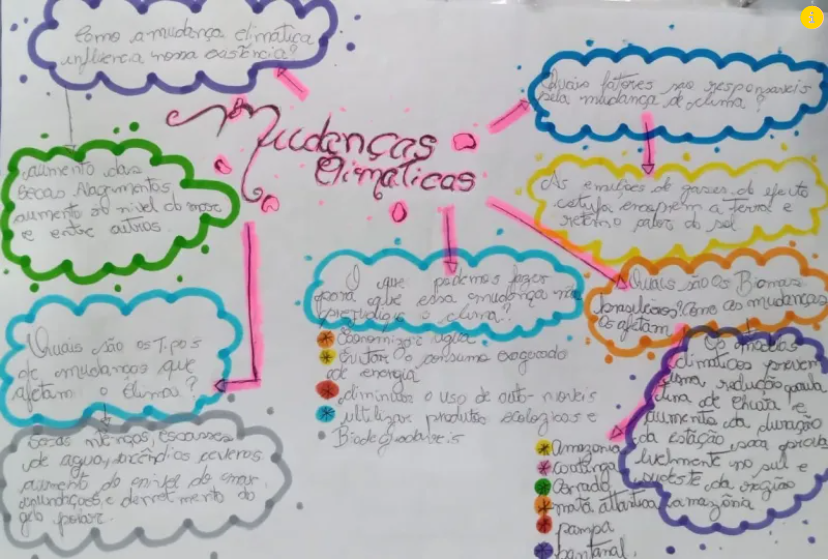 Como a mudença climática
influencia nossa existência?
Mudanças
Climáticas
Quais fatores são responsaveis
pela mudança de clima?
As emissões de gases do efeito
estufa encoprem a terra e
retem o calor do sol
aumento das
Secas Alagamentos,
aumento do nivel do mar
e entre outros.
O que podemos fazer
para que essa mudança não
prejudique o clima?
Economizar água
Evitar o consumo exagerado
de energia
diminuir o uso de auto-moveis
ultilizar produtos ecologicos e
Biodegradaveis
Quais são os Biomas
brasileiros? Como as mudanças
os afetam
Quais são os Tipos
de mudanças que
afetam o clima?
Secas, escasses
de agua, incêndios severos
aumento do nivel do mar
inundações, e derretimento do
gelo polar.
climaticos preveem
uma redução
de chuva e
aumento da duração
da estação seca
no sul e
sudeste da região
amazônia
Amazonia
caatinga
Cerrado
mata atlantica
pampa
pantanal